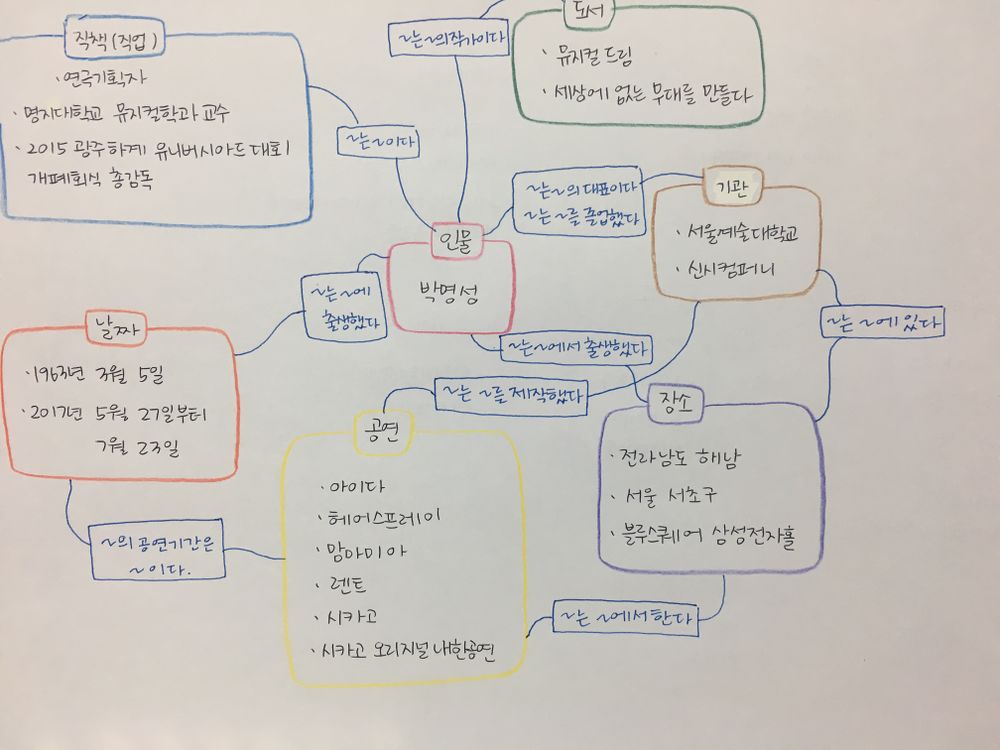 직책(직업)
· 연극기획자
· 명지대학교 뮤지컬학과 교수
· 2015 광주하계 유니버시아드 대회
개폐회식 총감독
~는 ~의 작가이다
도서
· 뮤지컬 드림
· 세상에 없는 무대를 만들다
~는 ~이다
~는 ~의 대표이다
~는 ~를 졸업했다
기관
· 서울예술대학교
· 신시컴퍼니
인물
박명성
~는 ~에
출생했다
~는 ~에서 출생했다
~는 ~에 있다
날짜
· 1963년 3월 5일
· 2017년 5월 27일부터
7월 23일
~는 ~를 제작했다
장소
· 전라남도 해남
· 서울 서초구
· 블루스퀘어 삼성전자홀
공연
· 아이다
· 헤어스프레이
· 맘마미아
· 렌트
· 시카고
· 시카고 오리지널 내한공연
~의 공연기간은
~이다.
~는 ~에서 한다